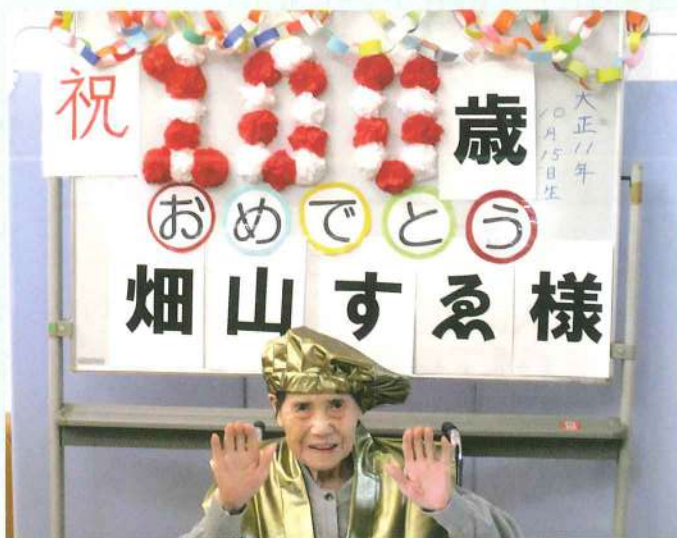 祝
100歳
大正11年
10月15日生
おめでとう
畑山すゑ様